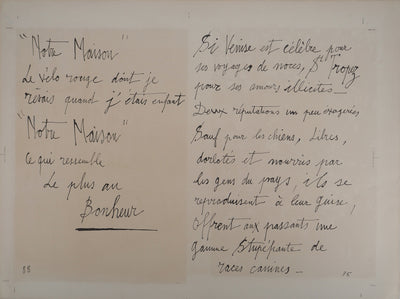 "Notre Maison"
Le vélo rouge dont je
rêvais quand j'étais enfant
"Notre Maison"
Ce qui ressemble
Le plus au
Bonheur
88
Si Venise est célèbre pour
ses voyages de noces, St Tropez
pour ses amours illicites -
Deux réputations un peu exagérées
Sauf pour les chiens, Libres,
dorlotés et nourris par
les gens du pays, ils se
reproduisent à leur guise,
offrent aux passants une
gamme stupéfiante de
races canines -